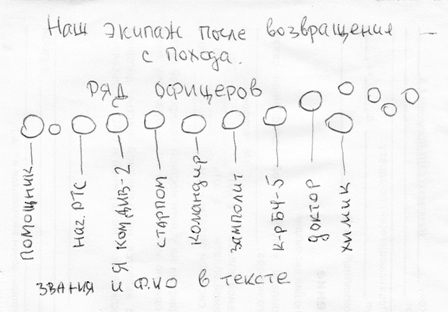 Наш экипаж после возвращение —
с похода.
ряд офицеров
помощник
нач. РТС
Я комдив-2
старпом
командир
замполит
к-р БЧ-5
доктор
химик
звания и ФИО в тексте